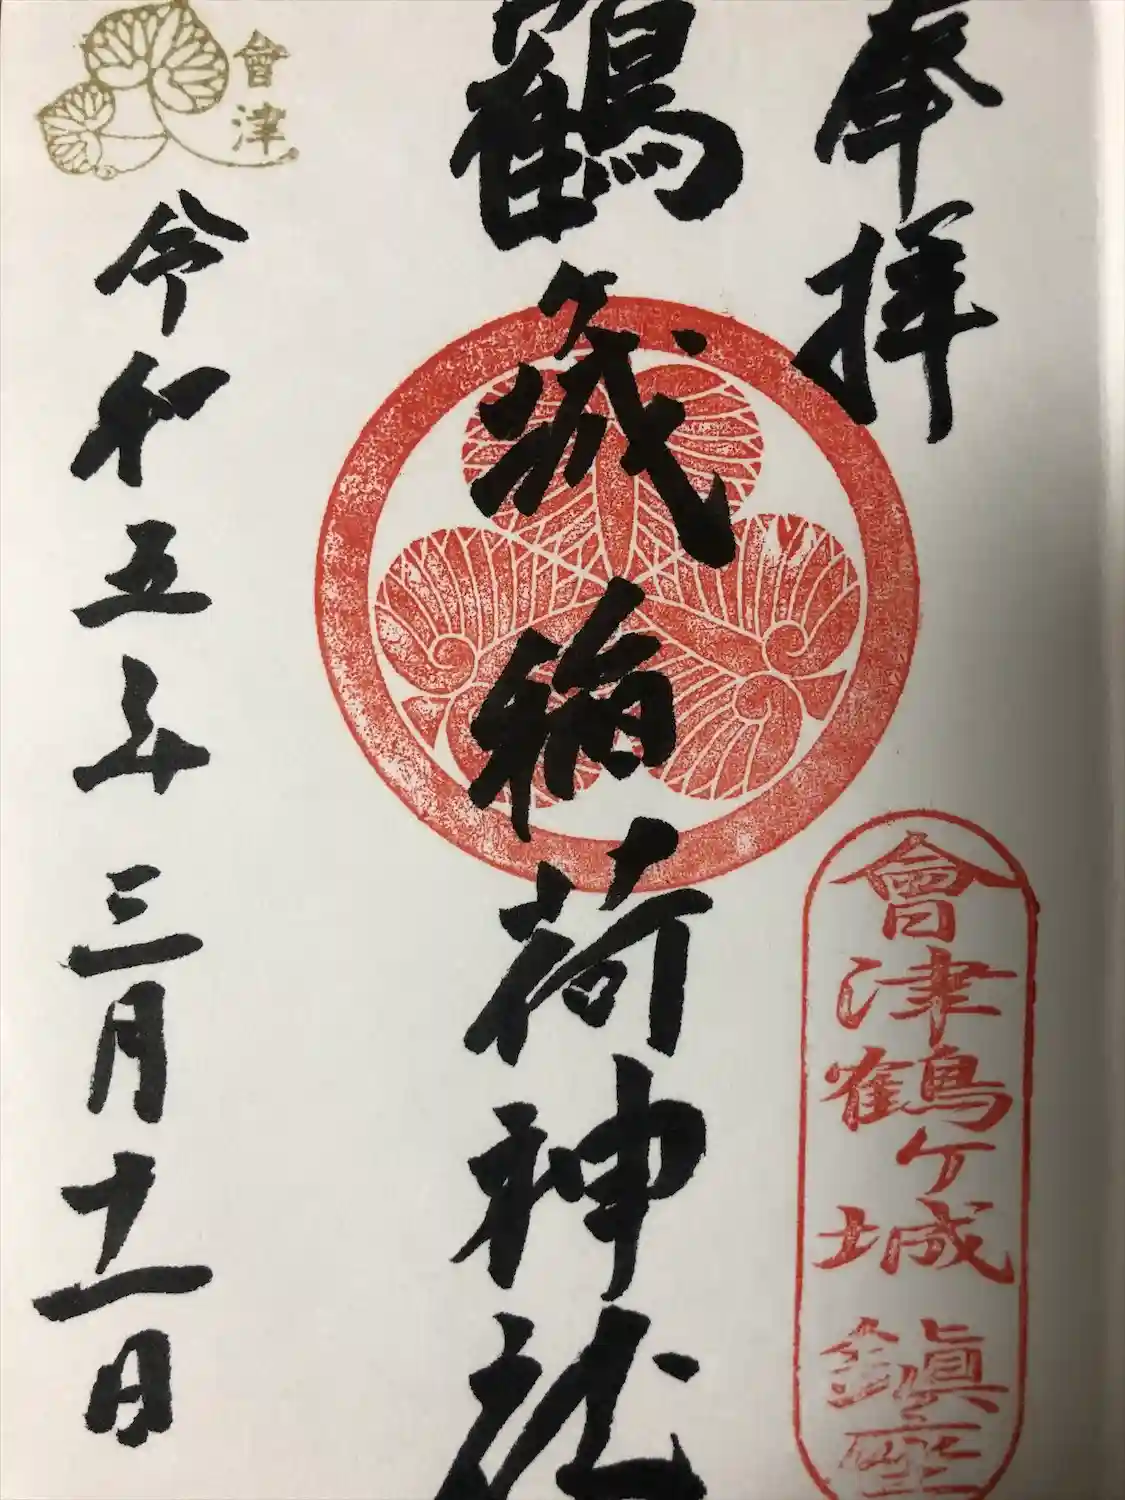 奉拝
會津鶴ヶ城鎮座
鶴ヶ城稲荷神社
會津
令和五年三月十一日